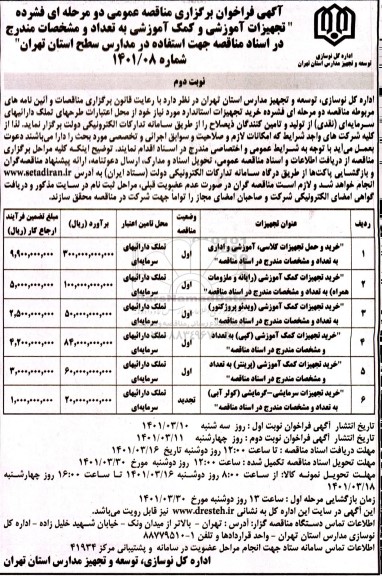 آگهی فراخوان برگزاری مناقصه عمومی دو مرحله ای فشرده
" تجهیزات آموزشی و کمک آموزشی به تعداد و مشخصات مندرج
در اسناد مناقصه جهت استفاده در مدارس سطح استان تهران"
شماره ۱۴۰۱/۰۸
اداره کل نوسازی
توسعه و تجهیز مدارس استان تهران
نوبت دوم
اداره کل نوسازی، توسعه و تجهیز مدارس استان تهران در نظر دارد با رعایت قانون برگزاری مناقصات و آئین نامه های
مربوطه مناقصه دو مرحله ای فشرده خرید تجهیزات استاندارد مورد نیاز خود از محل اعتبارات طرحهای تملک دارائیهای
سرمایه‌ای (نقدی) از تولید و تامین کنندگان ذیصلاح را از طریق سامانه تدارکات الکترونیکی دولت برگزار نماید. لذا از
کلیه شرکت های واجد شرایط که امکانات لازم و صلاحیت و سوابق اجرایی و تخصصی مورد بحث را دارا می‌باشند دعوت
بعمل می‌آید با توجه به شرایط عمومی و اختصاصی مندرج در اسناد اقدام نمایند. توضیح اینکه کلیه مراحل برگزاری
مناقصه از دریافت اطلاعات و اسناد مناقصه عمومی، تحویل اسناد و مدارک، ارسال دعوتنامه، ارائه پیشنهاد مناقصه‌گران
و بازگشایی پاکت‌ها از طریق درگاه سامانه تدارکات الکترونیکی دولت (ستاد ایران) به آدرس www.setadiran.ir
انجام خواهد شد و لازم است مناقصه گران در صورت عدم عضویت قبلی، مراحل ثبت نام در سایت مذکور و دریافت
گواهی امضای الکترونیکی شرکت و صاحبان امضای مجاز را تواما جهت شرکت در مناقصه محقق سازند.
ردیف عنوان تجهیزات وضعیت مناقصه محل تامین اعتبار برآورده (ریال) مبلغ تضمین فرآیند ارجاع کار (ریال)
۱ "خرید و حمل تجهیزات کلاسی، آموزشی و اداری به تعداد و مشخصات مندرج در اسناد مناقصه" اول تملک دارائیهای سرمایه‌ای ۳۰۰,۰۰۰,۰۰۰,۰۰۰ ۹,۹۰۰,۰۰۰,۰۰۰
۲ "خرید تجهیزات کمک آموزشی (رایانه و ملزومات همراه) به تعداد و مشخصات مندرج در اسناد مناقصه" اول تملک دارائیهای سرمایه‌ای ۱۰۰,۰۰۰,۰۰۰,۰۰۰ ۵,۰۰۰,۰۰۰,۰۰۰
۳ "خرید تجهیزات کمک آموزشی (ویدئو پروژکتور) به تعداد و مشخصات مندرج در اسناد مناقصه" اول تملک دارائیهای سرمایه‌ای ۵۰,۰۰۰,۰۰۰,۰۰۰ ۲,۵۰۰,۰۰۰,۰۰۰
۴ "خرید تجهیزات کمک آموزشی (کپی) به تعداد و مشخصات مندرج در اسناد مناقصه" اول تملک دارائیهای سرمایه‌ای ۸۴,۰۰۰,۰۰۰,۰۰۰ ۴,۲۰۰,۰۰۰,۰۰۰
۵ "خرید تجهیزات کمک آموزشی (پرینتر) به تعداد و مشخصات مندرج در اسناد مناقصه" اول تملک دارائیهای سرمایه‌ای ۶۰,۰۰۰,۰۰۰,۰۰۰ ۳,۰۰۰,۰۰۰,۰۰۰
۶ "خرید تجهیزات سرمایشی-گرمایشی (کولر آبی) به تعداد و مشخصات مندرج در اسناد مناقصه" تجدید تملک دارائیهای سرمایه‌ای ۲۰,۰۰۰,۰۰۰,۰۰۰ ۱,۰۰۰,۰۰۰,۰۰۰
تاریخ انتشار آگهی فراخوان نوبت اول : روز سه شنبه ۱۴۰۱/۰۳/۱۰
تاریخ انتشار آگهی فراخوان نوبت دوم : روز چهارشنبه ۱۴۰۱/۰۳/۱۱
مهلت دریافت اسناد مناقصه : تا ساعت ۱۲:۰۰ روز دوشنبه تاریخ ۱۴۰۱/۰۳/۱۶
مهلت تحویل اسناد مناقصه تکمیل شده : ساعت ۱۲:۰۰ روز دوشنبه مورخ ۱۴۰۱/۰۳/۳۰
مهلت تحویل نمونه کالا: از ساعت ۸:۰۰ روز دوشنبه ۱۴۰۱/۰۳/۱۶ تا ساعت ۱۶:۰۰ روز چهارشنبه
۱۴۰۱/۰۳/۱۸
زمان بازگشایی مرحله اول : ساعت ۱۳ روز دوشنبه مورخ ۱۴۰۱/۰۳/۳۰
این آگهی در سایت این اداره کل به نشانی www.dresteh.ir نیز قابل رویت می‌باشد.
اطلاعات تماس دستگاه مناقصه گزار: آدرس : تهران - بالاتر از میدان ونک - خیابان شهید خلیل زاده - اداره کل
نوسازی مدارس استان تهران - واحد قراردادها و تلفن ۱-۸۸۷۷۹۵۱۰
اطلاعات تماس سامانه ستاد جهت انجام مراحل عضویت در سامانه و پشتیبانی مرکز ۴۱۹۳۴
اداره کل نوسازی، توسعه و تجهیز مدارس استان تهران